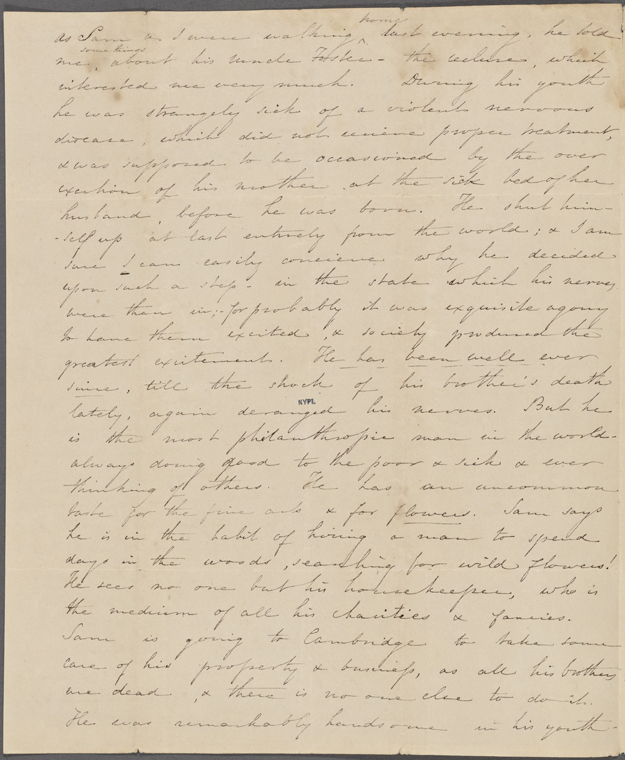 home
as Sam & I were walking last evening, he told
somethings
me, about his uncle Foster - the recluse, which
interested me very much. During his youth
he was strangely sick of a violent nervous
disease, which did not receive proper treatment,
& was supposed to be occasioned by the over
exertion of his mother at the sick bed of her
husband, before he was born. He shut him-
-self up at last entirely from the world; & I am
sure I can easily conceive why he decided
upon such a step - in the state which his nerves
were then in; - for probably it was exquisite agony
to have them excited, & society produced the
greatest excitement. He has been well ever
since, till the shock of his brother's death
NYPL
lately, again deranged his nerves. But he
is the most philanthropic man in the world -
always doing good to the poor & sick & ever
thinking of others. He has an uncommon
taste for the fine arts & for flowers. Sam says
he is in the habit of hiring a man to spend
days in the woods, searching for wild flowers!
He sees no one but his housekeeper, who is
the medium of all his charities & fancies.
Sam is going to Cambridge to take some
care of his property & business, as all his brothers
are dead, & there is no one else to do it.
He was remarkably handsome in his youth -